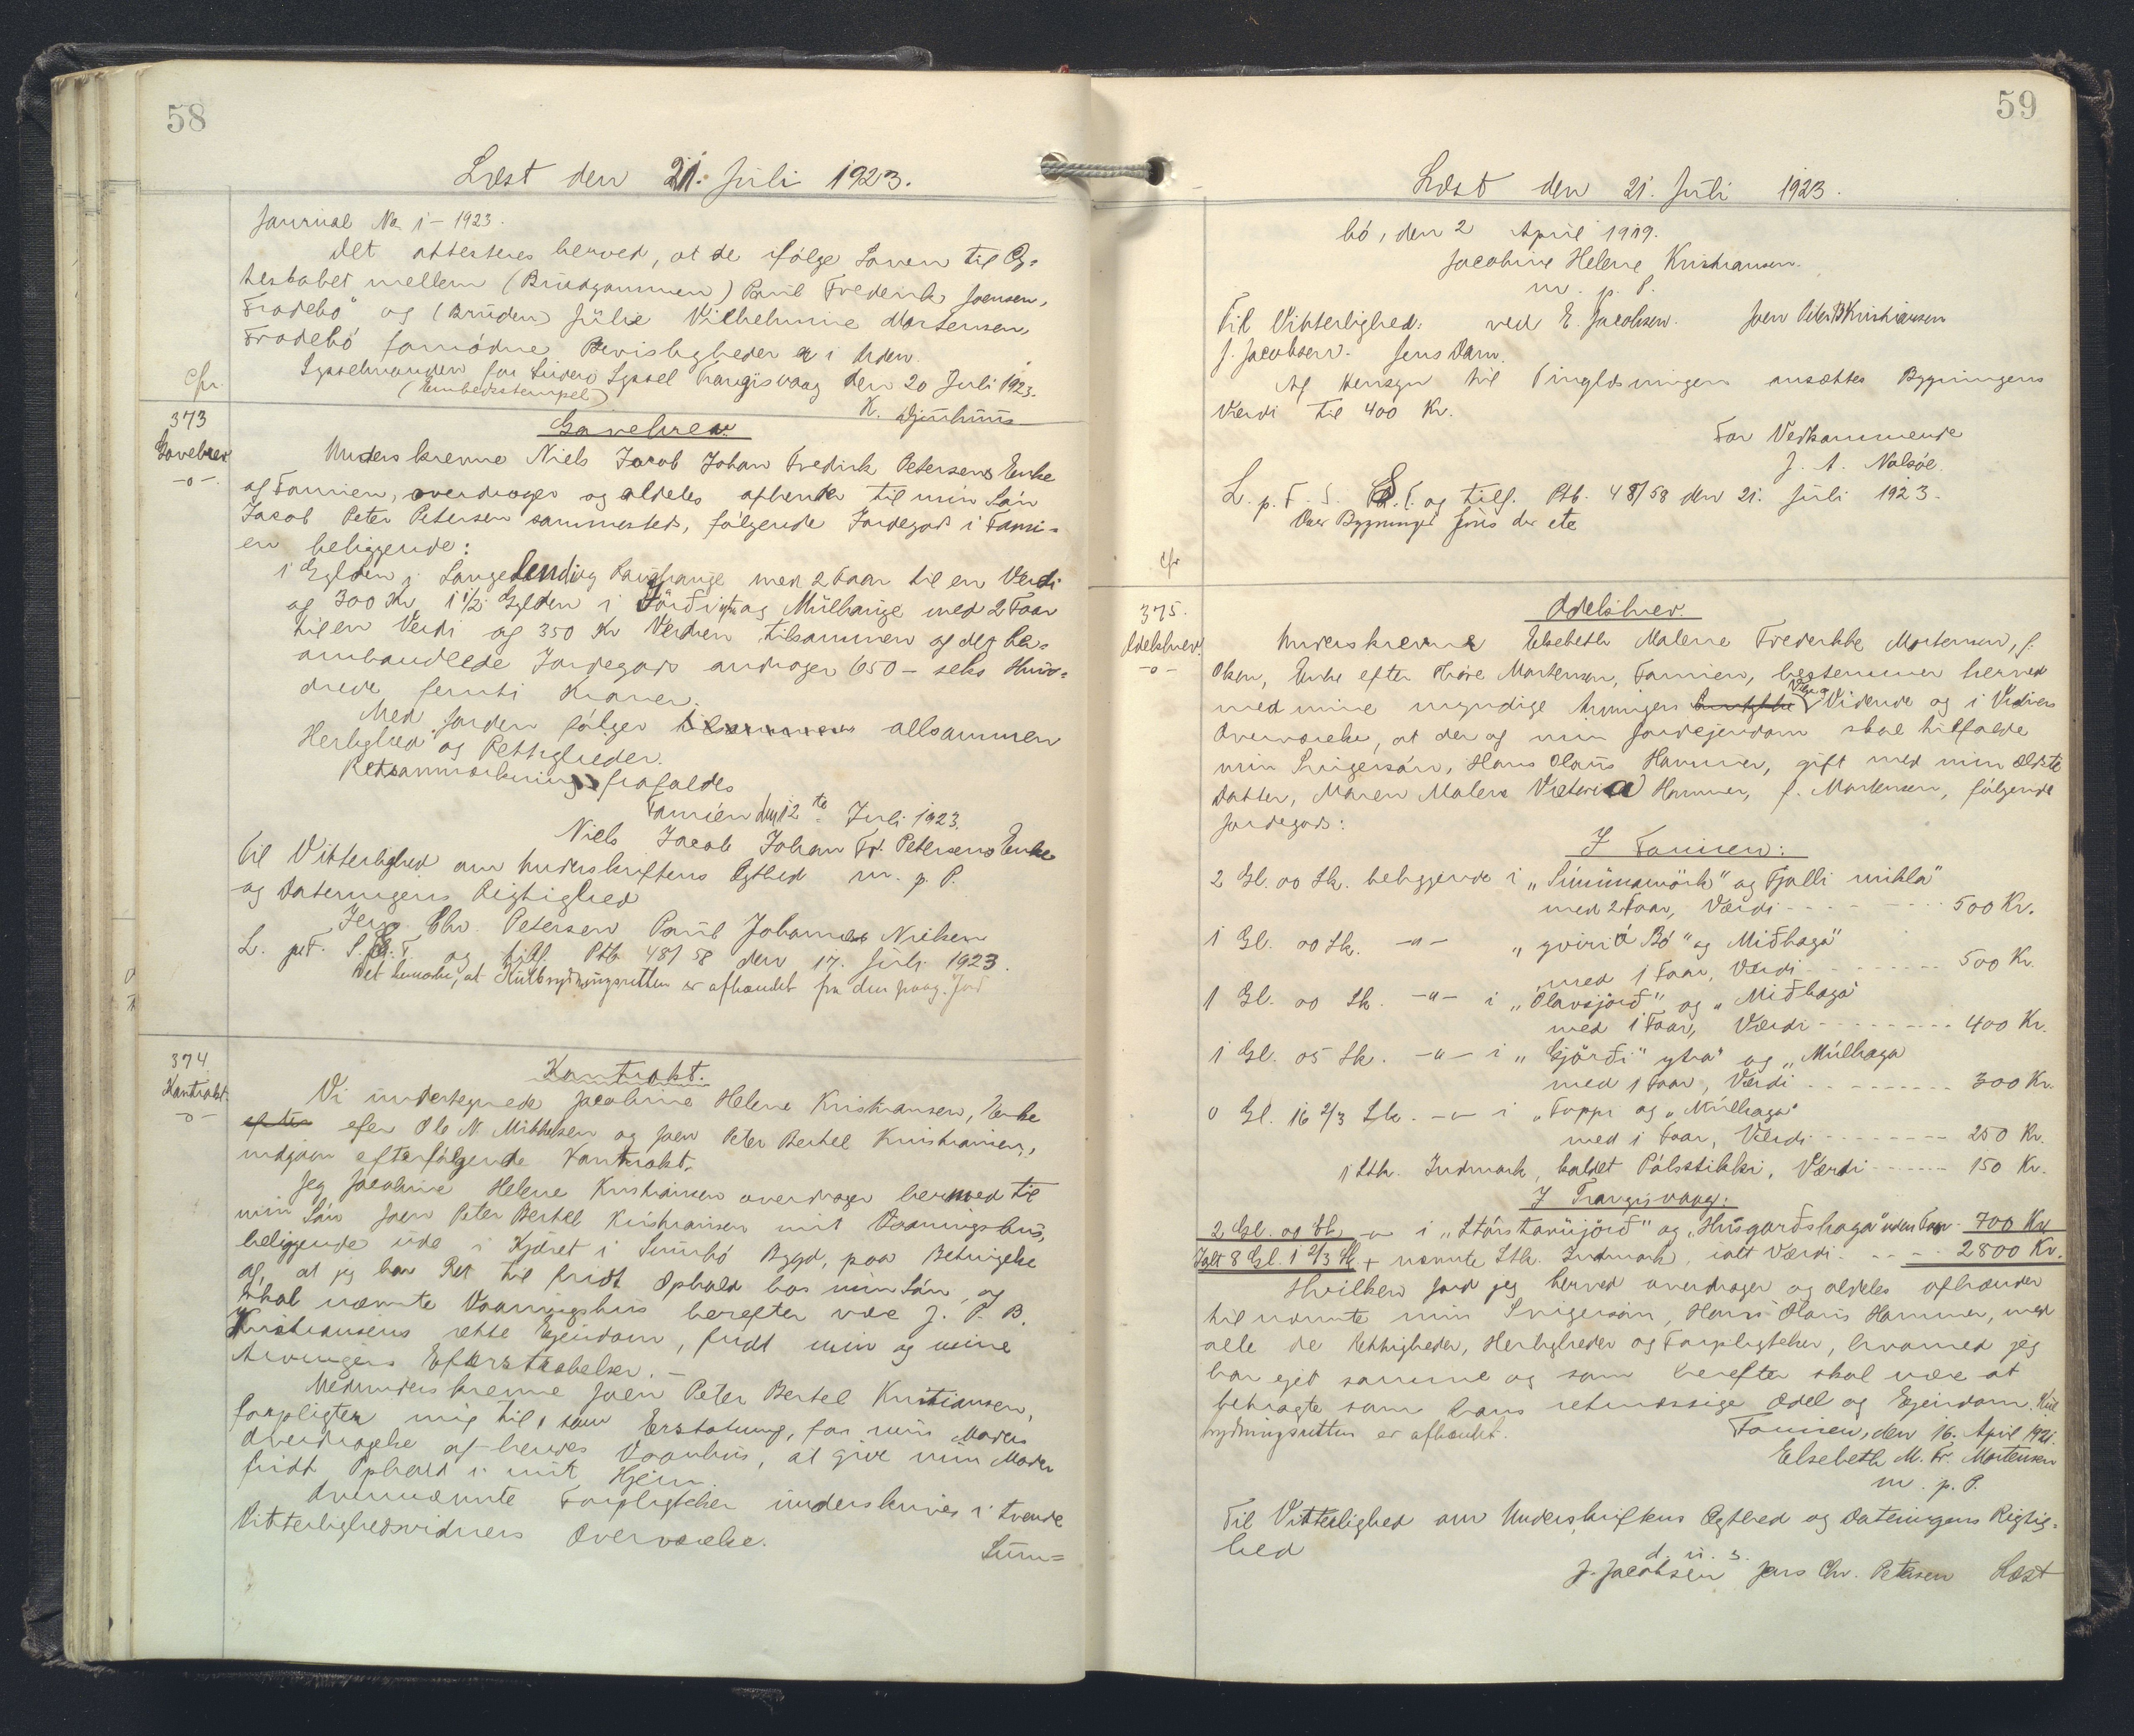 58
Læst den 21. Juli 1923.
Journal No 1 - 1923.
Det attesteres herved, at de ifølge Loven til Æg-
teskabet mellem (Brudgommen) Poul Frederik Joensen,
Frodebö og (Bruden) Julie Vilhelmine Mortensen,
Frodebö fornödne Bevisligheder er i Orden.
Sysselmanden for Suderø Syssel Trangisvaag den 20 Juli 1923.
(Embedsstempel)
K. Djurhuus
cfr.
373
Gavebrev
-o-
Gavebrev
Underskrevne Niels Jacob Johan Fredrik Petersens Enke
af Famien, overdrager og aldeles afhender til min Sön
Jacob Peter Petersen sammesteds, følgende Jordegods i Fami-
en beliggende:
1 Gylden i Langelending Haughauge med 2 Faar til en Verdi
af 300 Kr, 1 1/2 Gylden i Görðiytra og Múlhauge med 2 Faar
til en Verdi af 350 Kr Verdien tilsammen af det her-
omhandlede Jordegods andrager 650 - seks Hun-
drede femti Kroner.
Med Jorden følger allsammen
Herlighed og Rettigheder.
Retsanmærkning frafaldes
Famien den 12te Juli 1923.
Niels Jacob Johan Fr. Petersens Enke
Til Vitterlighed om Underskriftens Ægthed m. p. P.
og Dateringens Rigtighed
Jens Chr. Petersen Poul Johannes Nielsen
L. p. F. S. E. T. og tilf. Ptb. 48/58 den 17. Juli 1923.
Det bemærkes, at Kulbrydningsretten er afhændet fra den paag. Jord
374
Kontrakt.
-o-
Kontrakt.
Vi undertegnede Jacobine Helene Kristiansen, Enke
efter efter Ole N. Mikkelsen og Joen Peter Bertel Kristiansen,
indgaar efterfølgende Kontrakt.
Jeg Jacobine Helene Kristiansen overdrager hermed til
min Sön Joen Peter Bertel Kristiansen mit Vaaningshus,
beliggende ude i Kjæret i Sumbö Bygd, paa Betingelse
af, at jeg har Ret til fridt Ophold hos min Sön, og
skal nævnte Vaaningshus herefter være J. P. B.
Kristiansens rette Ejendom, fridt min og mine
Arvingers Efterstræbelser. -
Medunderskrevne Joen Peter Bertel Kristiansen,
forpligter mig til, som Erstatning, for min Moders
Overdragelse af hendes Vaanhus, at give min Moder
fridt Ophold i mit Hjem.
Ovennævnte Forpligtelser underskrives i tvende
Vitterlighedsvidners Overværelse.
Sum-
59
Læst den 21. Juli 1923.
bö, den 2 April 1919.
Jacobine Helene Kristiansen.
m. p. P.
Til Vitterlighed: ved E. Jacobsen. Joen Peter B Kristiansen
J. Jacobsen. Jens Dam.
Af Hensyn til Tinglæsningen ansættes Bygningens
Værdi til 400 Kr.
For Vedkommende
J. A. Nolsøe.
L. p. F. S. E. T. og tilf. Ptb. 48/58 den 21. Juli 1923.
Over Bygninger fins der ete
cfr
375.
Odelsbrev.
-o-
Odelsbrev.
Underskrevne Elsebeth Malene Frederikke Mortensen, f.
Olsen, Enke efter Thøre Mortensen, Famien, bestemmer herved
med mine myndige Arvingers Vilje og Vidende og i Vidners
Overværelse, at der af min Jordejendom skal tilfalde
min Svigersön, Hans Olaus Hammer, gift med min ældste
Datter, Maren Malene Victoria Hammer, f. Mortensen, følgende
Jordegods:
I Famien:
2 Gl. 00 Sk. beliggende i "Sunnumörk" og Fjalli mikla"
med 2 Faar, Værdi - - - - - 500 Kr.
1 Gl. 00 Sk. -"- "yviri á Bö" og Miðhaga"
med 1 Faar, Værdi - - - - - 500 Kr.
1 Gl. 00 Sk. -"- i "Olavsjörð" og "Miðhaga"
med 1 Faar, Værdi - - - - - 400 Kr.
1 Gl. 05 Sk. -"- i "Gjörði" ytra" og "Múlhaga
med 1 Faar, Værdi - - - - - 300 Kr.
0 Gl. 16 2/3 Sk. -"- i "Toppi og "Múlhaga"
med 1 Faar, Værdi - - - - - 250 Kr.
1 Stk. Indmark, kaldet Pólsstikki, Værdi - - - 150 Kr.
I Trangisvaag:
2 Gl. 00 Sk -"- i "Stórstovujörð" og "Húsgarðshaga" uden Faar 700 Kr
Ialt 8 Gl. 1 2/3 Sk + nævnte Stk. Indmark, ialt Værdi - - - - 2800 Kr.
Hvilken Jord jeg herved overdrager og aldeles afhænder
til nævnte min Svigersön, Hans Olaus Hammer, med
alle de Rettigheder, Herligheder og Forpligtelser, hvormed jeg
har ejet samme og som herefter skal være at
betragte som hans retmæssige Odel og Ejendom. Kul
brydningsretten er afhændet. Famien, den 16. April 1921.
Elsebeth M. Fr. Mortensen
m. p. P.
Til Vitterlighed om Underskriftens Ægthed og Dateringens Rigtig-
hed
d. u. s.
J. Jacobsen Jens Chr. Petersen Læst